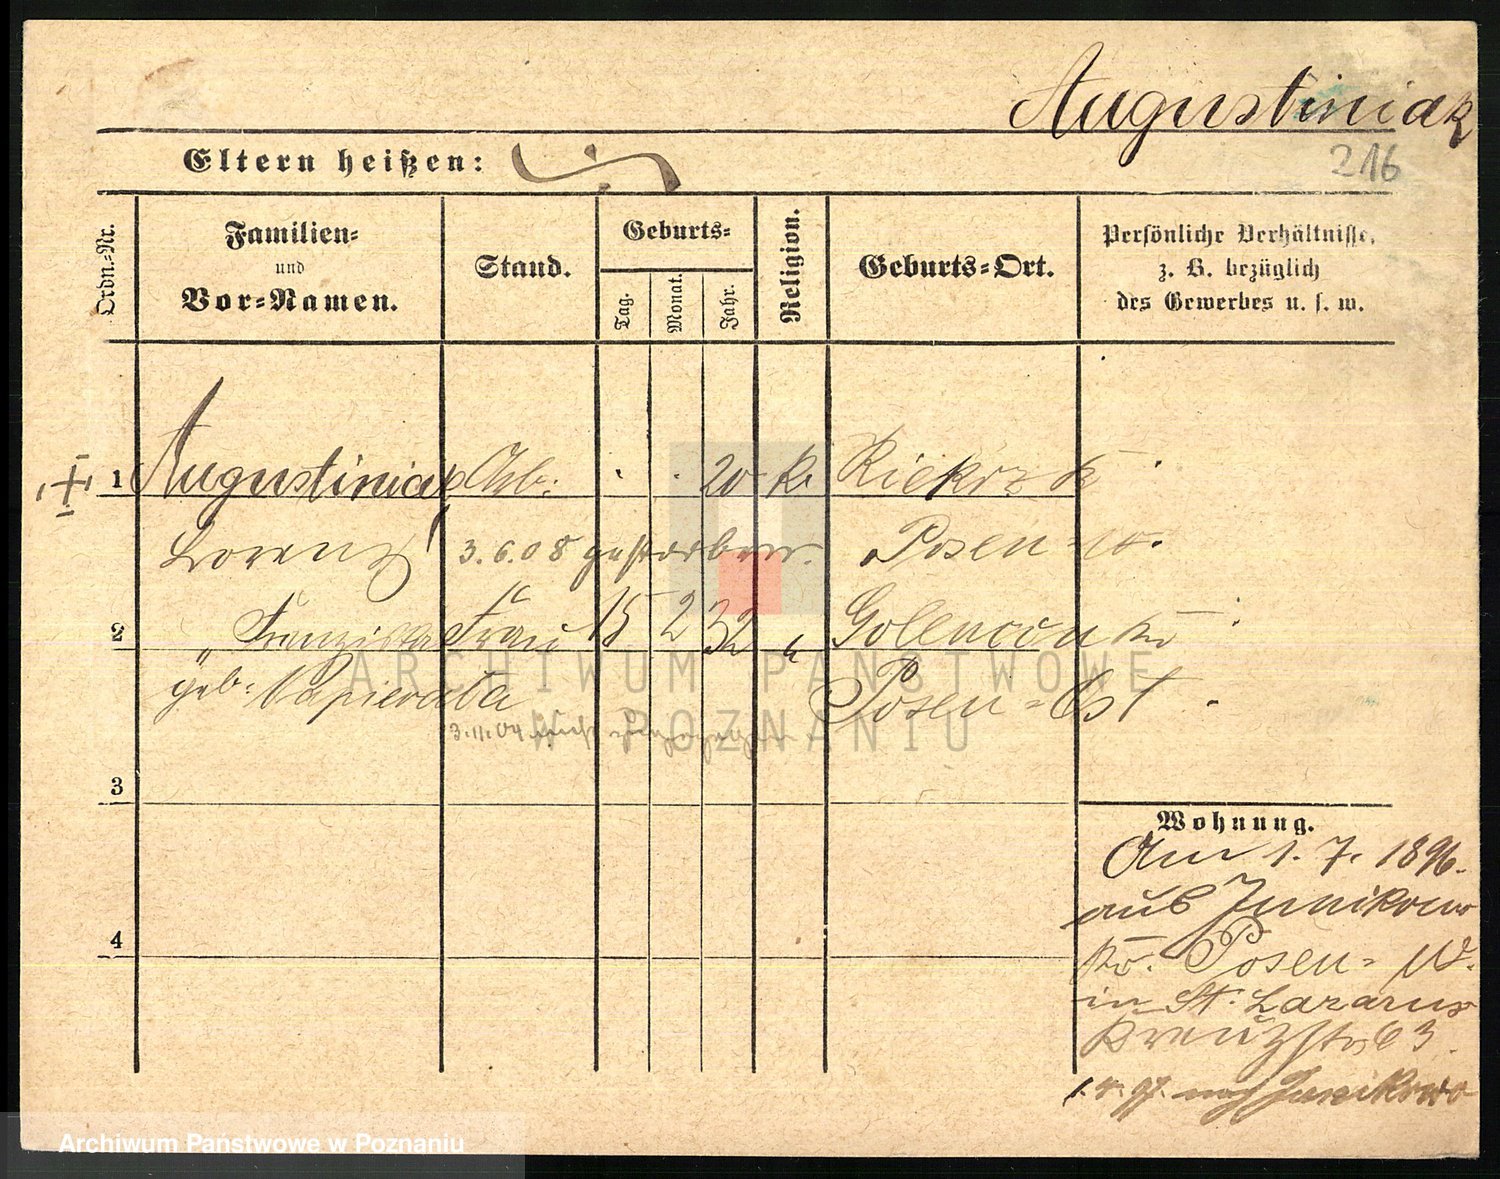 Augustiniak
216
Eltern heißen:
Ordn.-Nr.
Familien-
und
Vor-Namen.
Stand.
Geburts-
Tag.
Monat.
Jahr.
Religion.
Geburts-Ort.
Persönliche Verhältnisse,
z. B. bezüglich
des Gewerbes u. s. w.
1 Augustiniak Arb. 20 k. Kiekrz K
Lorenz 3.6.08 gestorben. Posen W.
2 " Franziska Frau 15 2 32 k Kr
geb. Posen-Ost
3.11.04
3
Wohnung.
Am 1. 7. 1896.
aus Junikowo
4
Kr. Posen-W.
in St. Lazarus
Kreuzstr. 63.
1.4.97. nach Junikowo
ARCHIWUM PAŃSTWOWE
W POZNANIU
Archiwum Państwowe w Poznaniu